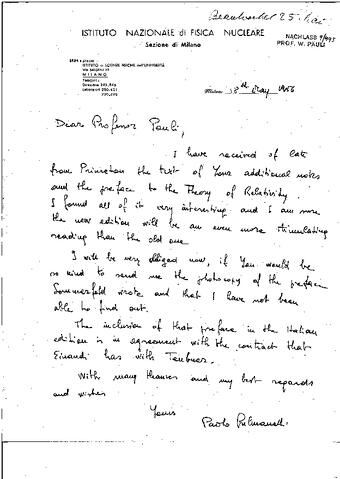 Beantwortet 25. Mai
ISTITUTO NAZIONALE di FISICA NUCLEARE
Sezione di Milano
NACHLASS
PROF. W. PAULI
MILANO
Milano 18th May 1956
Dear Professor Pauli,
I have received of late
from Princeton the text of Your additional notes
and the preface to the Theory of Relativity.
I found all of it very interesting and I am sure
the new edition will be an even more stimulating
reading than the old one
I will be very obliged now, if You would be
so kind to send me the photocopy of the preface
Sommerfeld wrote and that I have not been
able to find out.
The inclusion of that preface in the Italian
edition is in agreement with the contract that
Einaudi has with Teubner.
With many thanks and my best regards
and wishes
Yours
Paolo